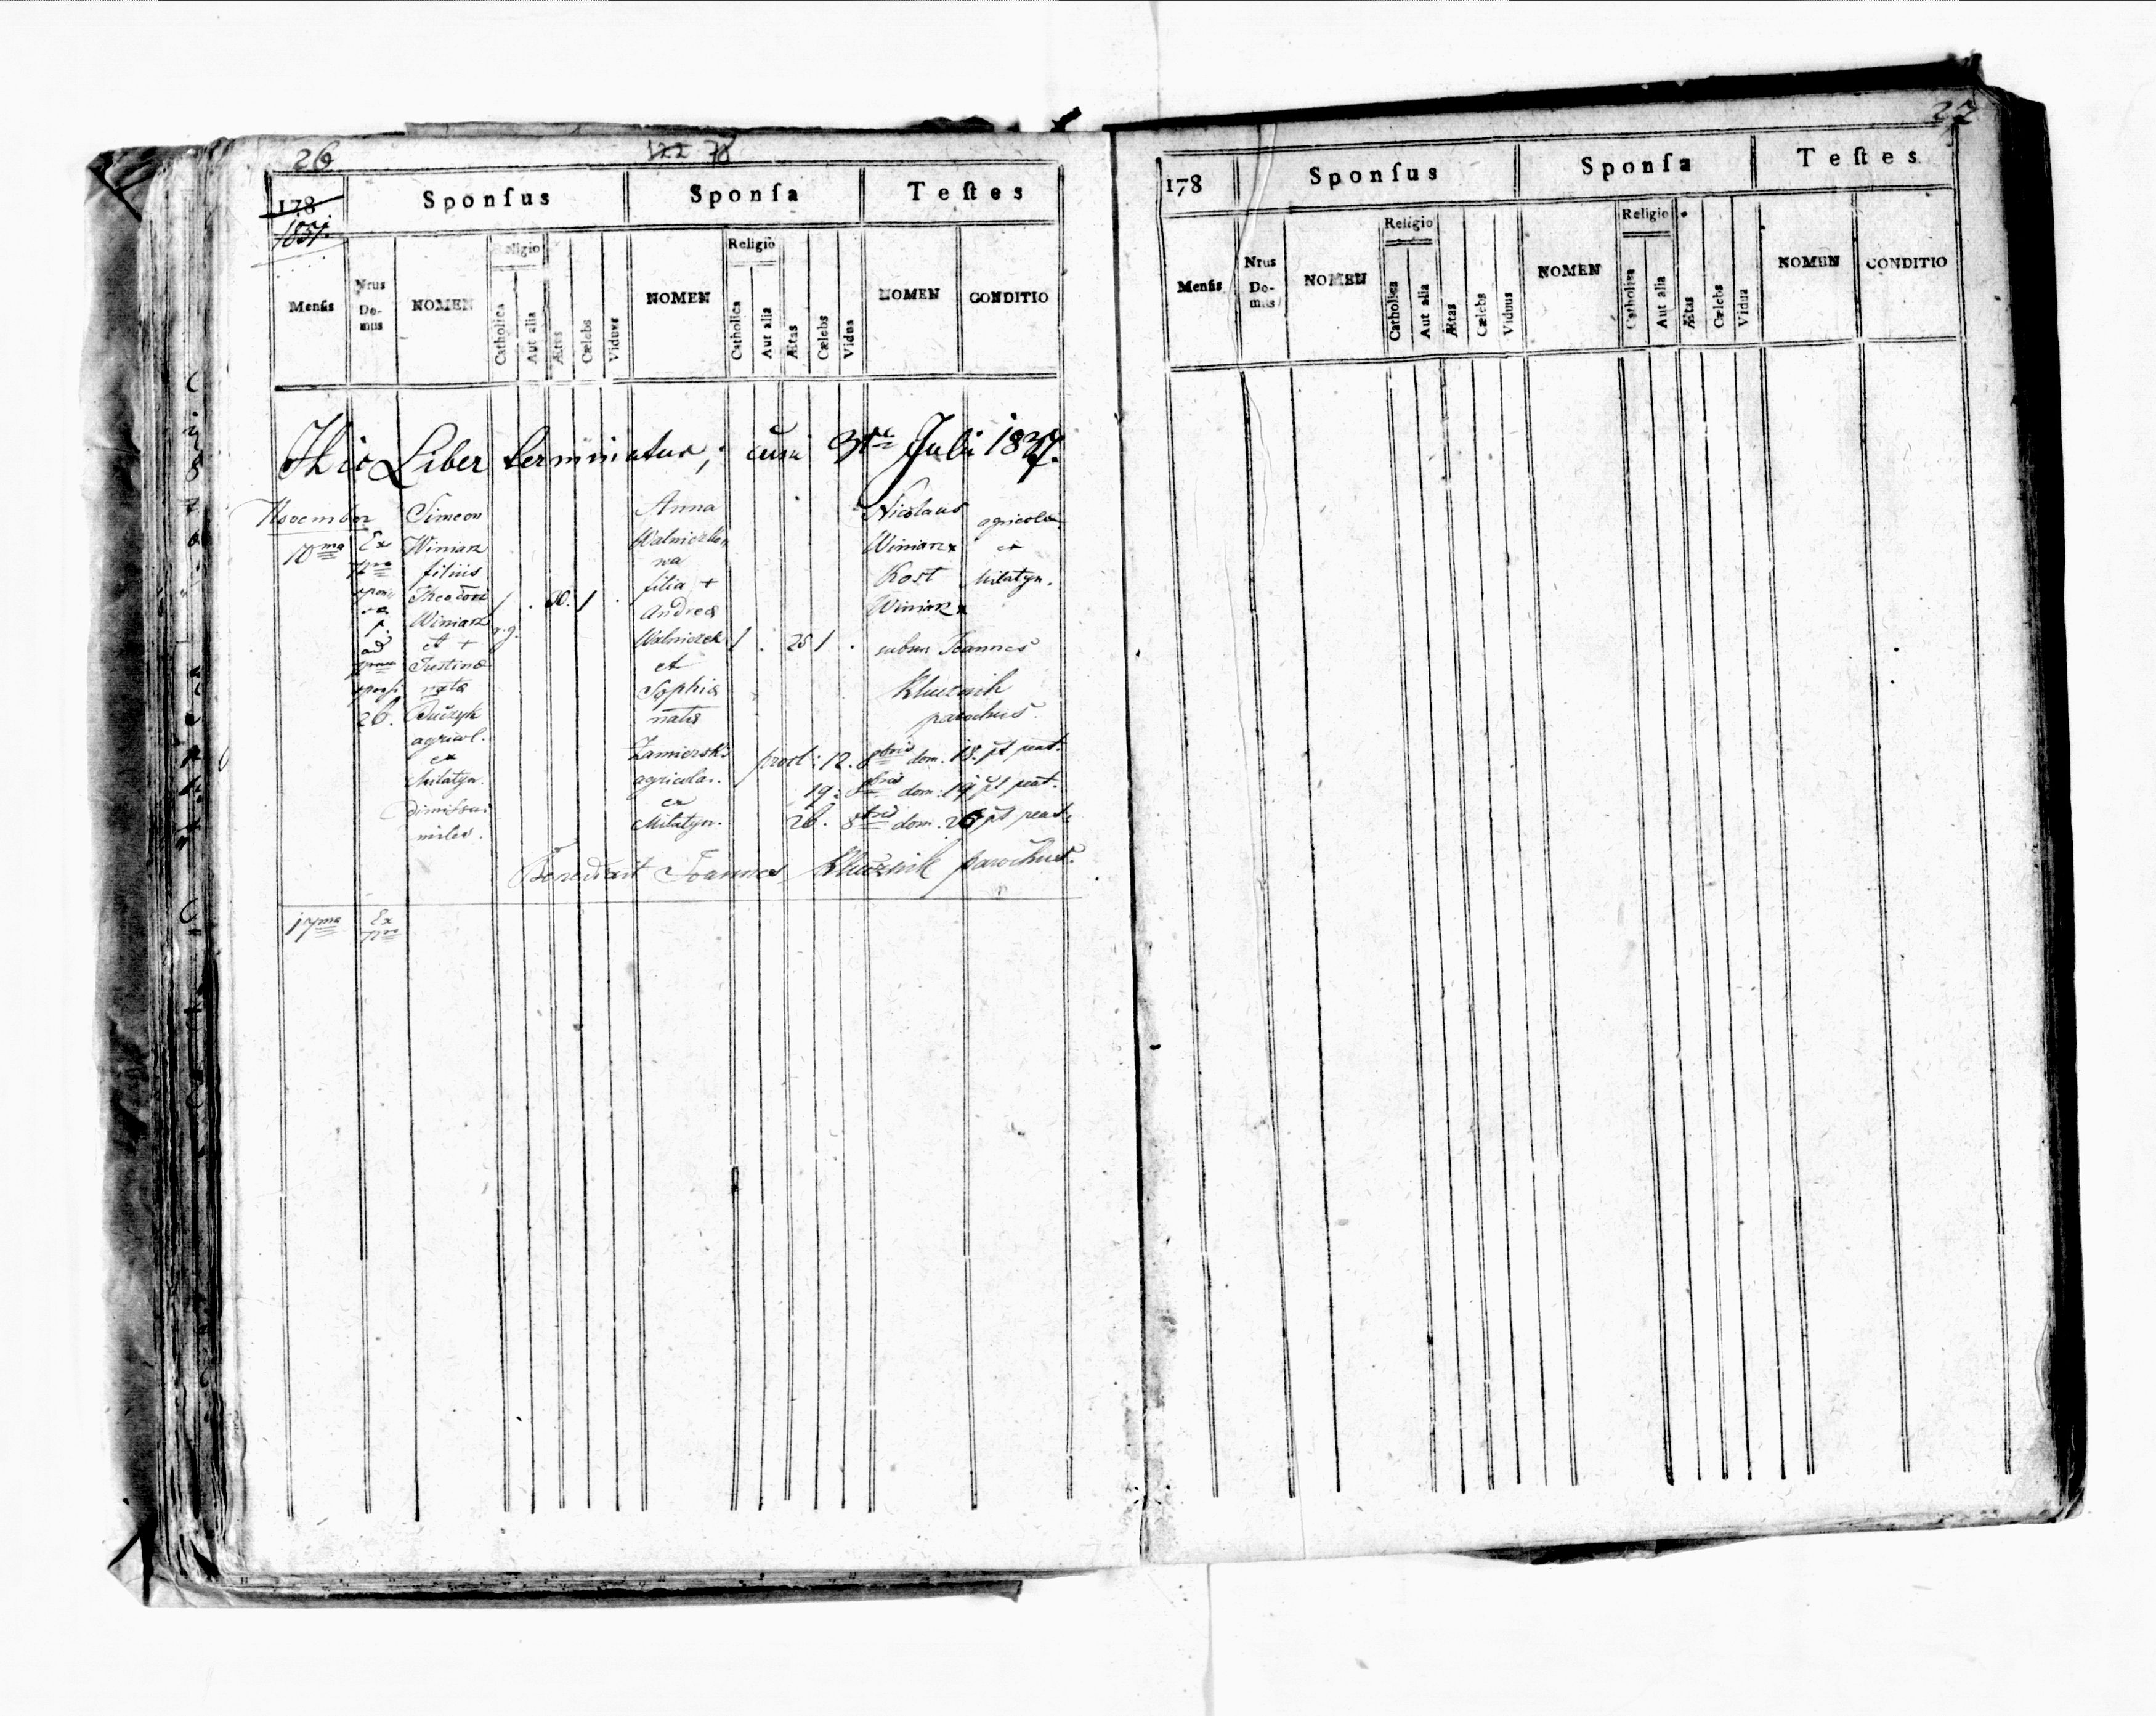 26
122 78
178
1851.
Sponſus
Sponſa
Teſtes
Menſis
Nrus Do-mus
NOMEN
Religio
Catholica
Aut alia
Ætas
Cælebs
Viduus
NOMEN
Religio
Catholica
Aut alia
Ætas
Cælebs
Vidua
NOMEN
CONDITIO
Hic Liber terminatur; cum Juli 1837.
November
10ma
Ex
26.
Simeon
Winiarz
filius
Theodori
Winiarz
et +
Justina
nata
agricol.
ex
Milatyn.
Dimissus
miles.
1 . 30. 1 .
r.g.
Anna
filia +
Andrea
Walniczek
et
Sophia
natis
agricola.
ex
Milatyn.
1 . 28 1 .
Nicolaus
Winiarz x
Kost
Winiarz x
agricola
ex
Milatyn.
Joannes
Klucznik
parochus.
12. 8bris dom. 18. pt pent.
19. 8bris dom. 19 pt pent.
26. 8bris dom. 20 pt pent.
Joannes Klucznik parochus.
17ma
Ex
27
178
Sponſus
Sponſa
Teſtes
Menſis
Nrus Do-mus
NOMEN
Religio
Catholica
Aut alia
Ætas
Cælebs
Viduus
NOMEN
Religio
Catholica
Aut alia
Ætas
Cælebs
Vidua
NOMEN
CONDITIO